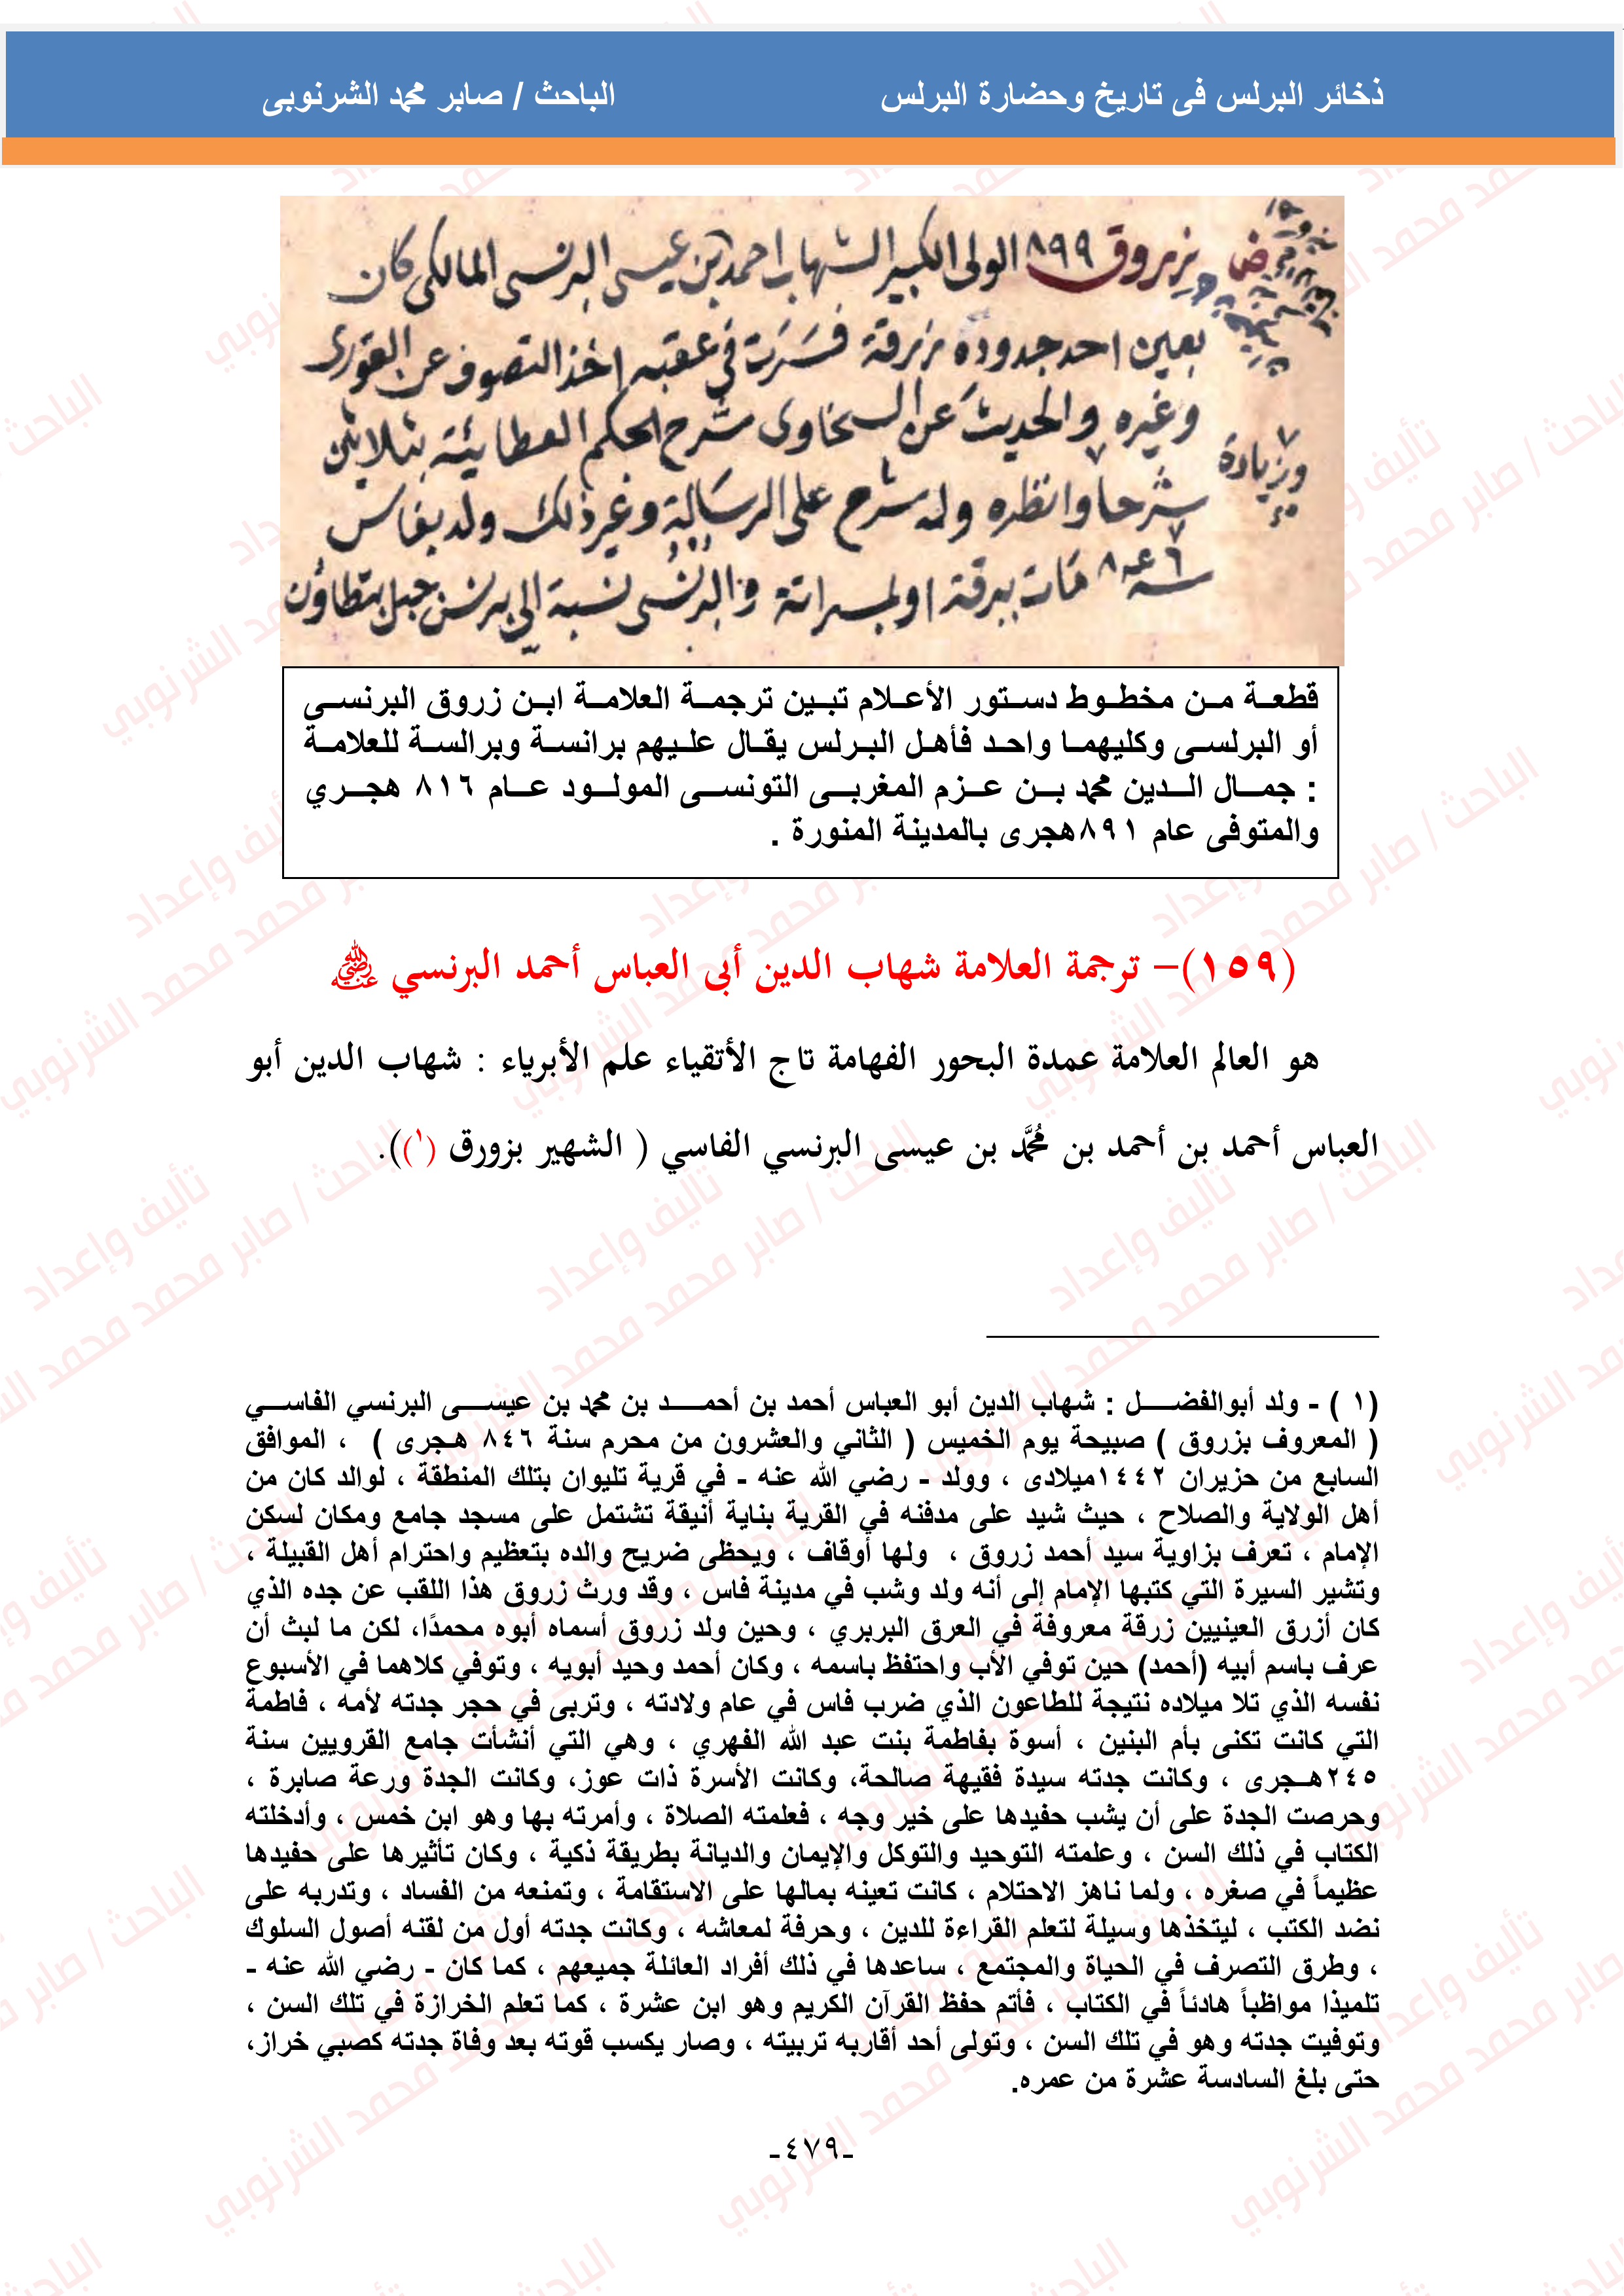 ذخائر البرلس فى تاريخ وحضارة البرلس الباحث / صابر محمد الشرنوبى
زروق ٨٩٩ الولى الكبير الشهاب احمد بن عيسى البرنسى المالكى كان
بعين احد جدوده زرقة فسرت في عقبه اخذ التصوف عن القورى
وغيره والحديث عن السخاوى شرح الحكم العطائية بثلاثين
وزيادة
شرحا وانظره وله شرح على الرسالة وغير ذلك ولد بفاس
سنة ٨٤٦ مات ببرقة او لمسراتة والبرنسى نسبة الى برنس جبل
قطعة من مخطوط دستور الأعلام تبين ترجمة العلامة ابن زروق البرنسى
أو البرلسى وكليهما واحد فأهل البرلس يقال عليهم برانسة وبرالسة للعلامة
: جمال الدين محمد بن عزم المغربى التونسى المولود عام ٨١٦ هجري
والمتوفى عام ٨٩١هجرى بالمدينة المنورة .
(١٥٩)– ترجمة العلامة شهاب الدين أبى العباس أحمد البرنسي ﵁
هو العالم العلامة عمدة البحور الفهامة تاج الأتقياء علم الأبرياء : شهاب الدين أبو
العباس أحمد بن أحمد بن مُحَمَّد بن عيسى البرنسي الفاسي ( الشهير بزورق (١)).
(١ ) - ولد أبوالفضل : شهاب الدين أبو العباس أحمد بن أحمد بن محمد بن عيسى البرنسي الفاسي
( المعروف بزروق ) صبيحة يوم الخميس ( الثاني والعشرون من محرم سنة ٨٤٦ هجرى ) ، الموافق
السابع من حزيران ١٤٤٢ميلادى ، وولد - رضي الله عنه - في قرية تليوان بتلك المنطقة ، لوالد كان من
أهل الولاية والصلاح ، حيث شيد على مدفنه في القرية بناية أنيقة تشتمل على مسجد جامع ومكان لسكن
الإمام ، تعرف بزاوية سيد أحمد زروق ، ولها أوقاف ، ويحظى ضريح والده بتعظيم واحترام أهل القبيلة ،
وتشير السيرة التي كتبها الإمام إلى أنه ولد وشب في مدينة فاس ، وقد ورث زروق هذا اللقب عن جده الذي
كان أزرق العينيين زرقة معروفة في العرق البربري ، وحين ولد زروق أسماه أبوه محمدًا، لكن ما لبث أن
عرف باسم أبيه (أحمد) حين توفي الأب واحتفظ باسمه ، وكان أحمد وحيد أبويه ، وتوفي كلاهما في الأسبوع
نفسه الذي تلا ميلاده نتيجة للطاعون الذي ضرب فاس في عام ولادته ، وتربى في حجر جدته لأمه ، فاطمة
التي كانت تكنى بأم البنين ، أسوة بفاطمة بنت عبد الله الفهري ، وهي التي أنشأت جامع القرويين سنة
٢٤٥هجرى ، وكانت جدته سيدة فقيهة صالحة، وكانت الأسرة ذات عوز، وكانت الجدة ورعة صابرة ،
وحرصت الجدة على أن يشب حفيدها على خير وجه ، فعلمته الصلاة ، وأمرته بها وهو ابن خمس ، وأدخلته
الكتاب في ذلك السن ، وعلمته التوحيد والتوكل والإيمان والديانة بطريقة ذكية ، وكان تأثيرها على حفيدها
عظيماً في صغره ، ولما ناهز الاحتلام ، كانت تعينه بمالها على الاستقامة ، وتمنعه من الفساد ، وتدربه على
نضد الكتب ، ليتخذها وسيلة لتعلم القراءة للدين ، وحرفة لمعاشه ، وكانت جدته أول من لقنه أصول السلوك
، وطرق التصرف في الحياة والمجتمع ، ساعدها في ذلك أفراد العائلة جميعهم ، كما كان - رضي الله عنه -
تلميذا مواظباً هادئاً في الكتاب ، فأتم حفظ القرآن الكريم وهو ابن عشرة ، كما تعلم الخرازة في تلك السن ،
وتوفيت جدته وهو في تلك السن ، وتولى أحد أقاربه تربيته ، وصار يكسب قوته بعد وفاة جدته كصبي خراز،
حتى بلغ السادسة عشرة من عمره.
-٤٧٩-